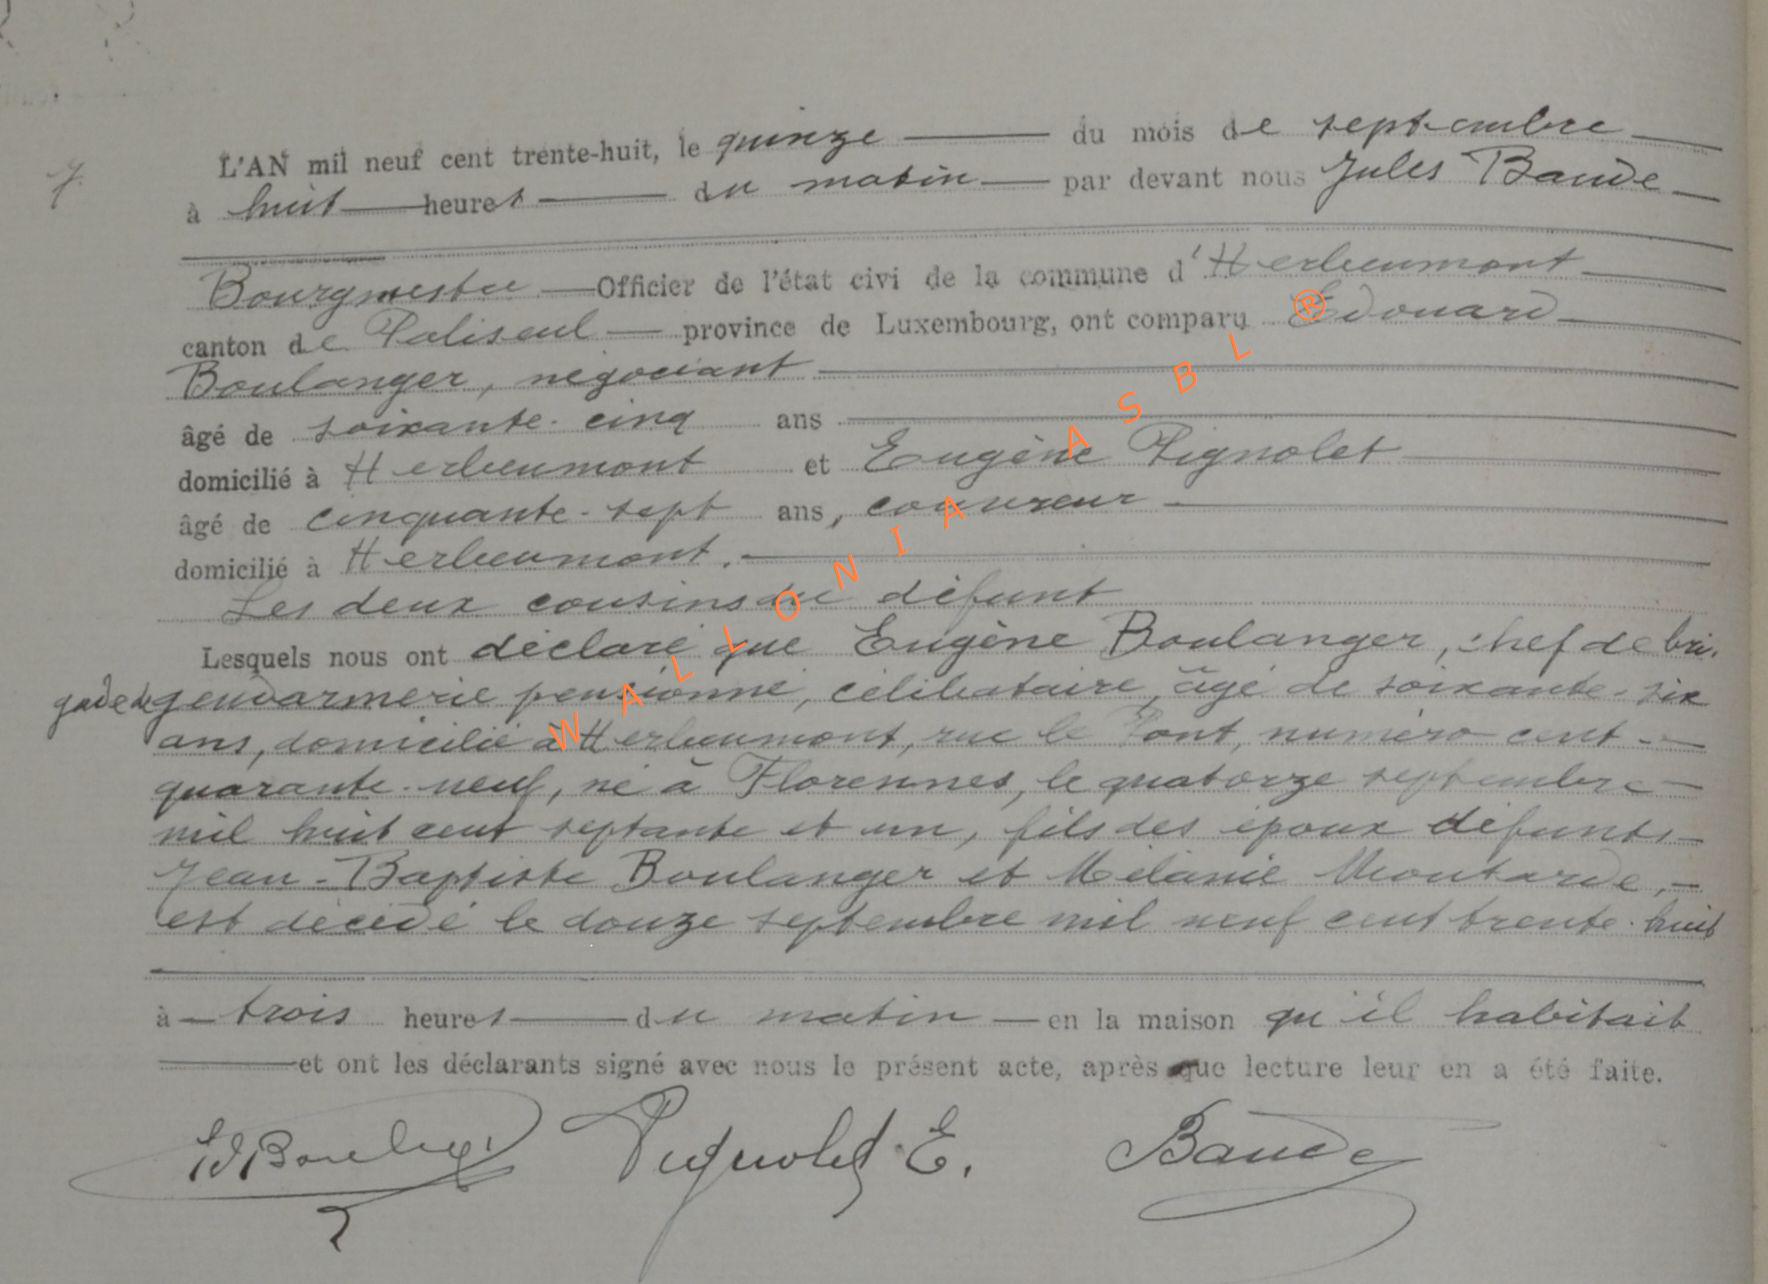 7.
L'AN mil neuf cent trente-huit, le quinze du mois de septembre
à huit heures du matin par devant nous Jules Baude
Bourgmestre Officier de l'état civi de la commune d'Herbeumont
canton de Paliseul province de Luxembourg, ont comparu Edouard
Boulanger, négociant
âgé de soixante-cinq ans
domicilié à Herbeumont et Eugène Pignolet
âgé de cinquante-sept ans, couvreur
domicilié à Herbeumont.
Les deux cousins du défunt
Lesquels nous ont déclaré que Eugène Boulanger, chef de bri-
gade de gendarmerie pensionné, célibataire, âgé de soixante-six
ans, domicilié à Herbeumont, rue le Pont, numéro cent
quarante-neuf, né à Florennes, le quatorze septembre
mil huit cent septante et un, fils des époux défunts
Jean-Baptiste Boulanger et Mélanie Moutarde,
est décédé le douze septembre mil neuf cent trente-huit
à trois heures du matin en la maison qu'il habitait
et ont les déclarants signé avec nous le présent acte, après que lecture leur en a été faite.
Ed Boulanger Pignolet E. Baude
WALLONIA ASBL ®